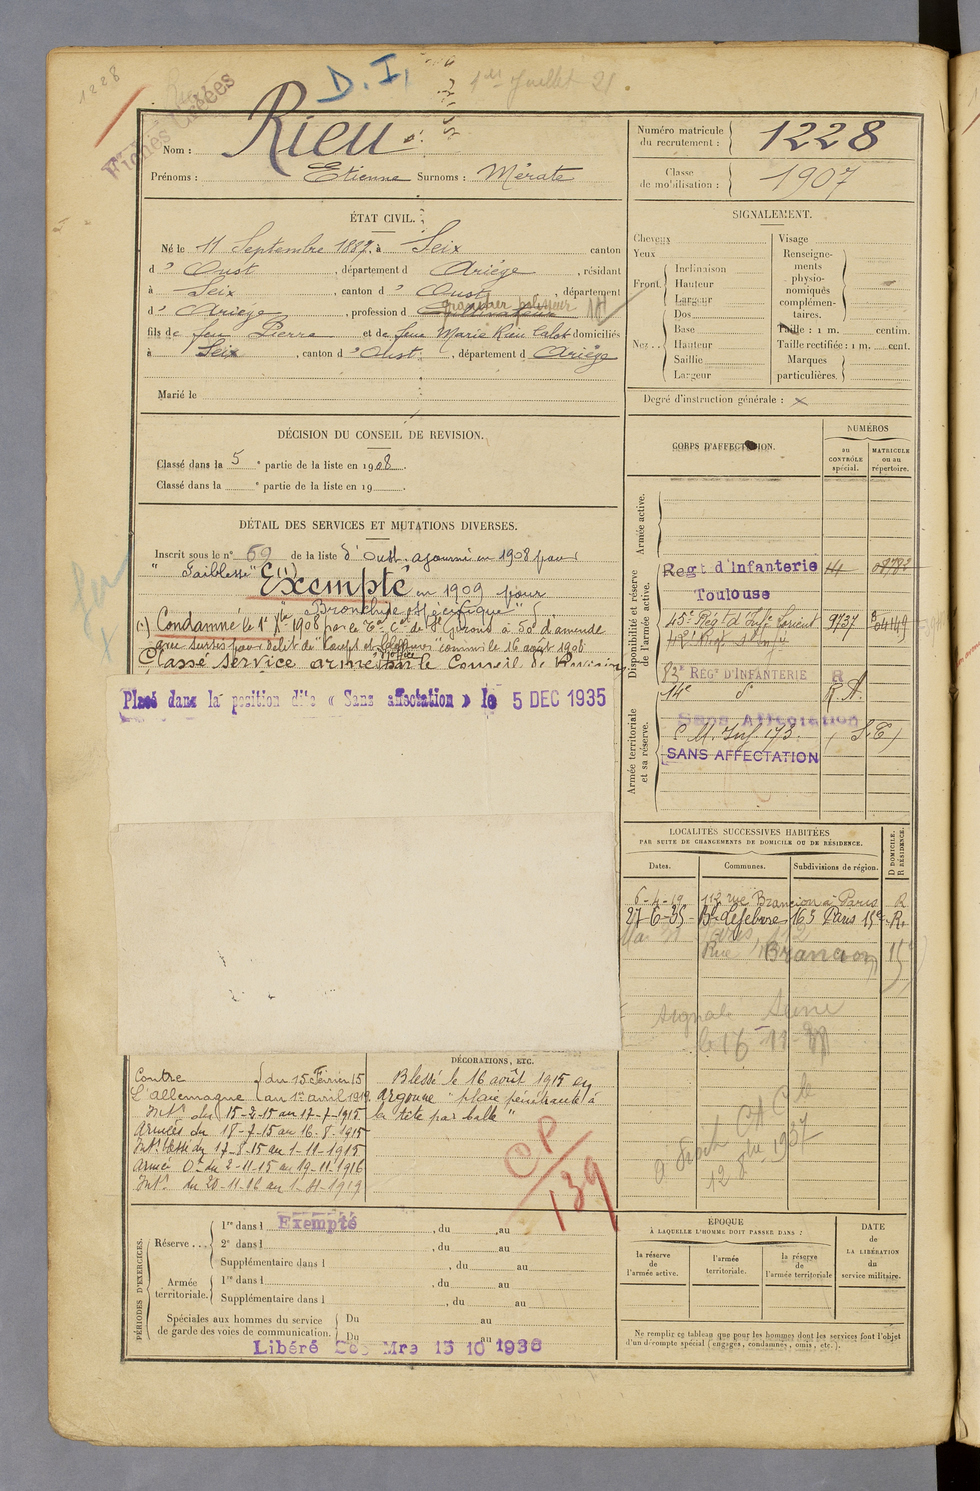 1228
D. I.
1er Juillet 21
Fiches Créées
Nom : Rieu
Prénoms : Etienne Surnoms : Mérate
Numéro matricule du recrutement : 1228
Classe de mobilisation : 1907
ÉTAT CIVIL.
Né le 11 Septembre 1887, à Seix canton
d' Oust, département d Ariége, résidant
à Seix, canton d' Oust département
d' Ariége, profession d Cultivateur
fils de feu Pierre et de feue Marie Rieu Calot domiciliés
à Seix, canton d' Oust, département d Ariége
Marié le
SIGNALEMENT.
Cheveux
Yeux
Front.
Inclinaison
Hauteur
Largeur
Nez..
Dos
Base
Hauteur
Saillie
Largeur
Visage
Renseignements physionomiques complémentaires.
Taille : 1 m. centim.
Taille rectifiée : 1 m. cent.
Marques particulières.
Degré d'instruction générale : x
DÉCISION DU CONSEIL DE REVISION.
Classé dans la 5e partie de la liste en 1908.
Classé dans la e partie de la liste en 19 .
DÉTAIL DES SERVICES ET MUTATIONS DIVERSES.
Inscrit sous le n° 69 de la liste d'Oust. ajourné en 1908 pour
"Faiblesse" (1)
Exempté en 1909 pour
"Bronchite spécifique"
(1) Condamné le 1er Xbre 1908 par le Tal Cel de St Girons à 50f d'amende
avec sursis pour délit de "Coups et blessures" commis le 16 août 1908
Classé service armé par le Conseil de Revision
Placé dans la position dite « Sans affectation » le 5 DEC 1935
CORPS D'AFFECTATION.
NUMÉROS
au CONTRÔLE spécial.
MATRICULE ou au répertoire.
Armée active.
Disponibilité et réserve de l'armée active.
Regt d'Infanterie
Toulouse
45e Régt d'Infie Lorient 9737
83e REGt D'INFANTERIE
14e de R. A.
Armée territoriale et sa réserve.
Sans Affectation
C. M. Inf. 173. (S. E)
SANS AFFECTATION
LOCALITÉS SUCCESSIVES HABITÉES
PAR SUITE DE CHANGEMENTS DE DOMICILE OU DE RÉSIDENCE.
Dates.
Communes.
Subdivisions de région.
D DOMICILE. R RÉSIDENCE.
6-4-19 112 rue Brancion à Paris R
27-6-35 Bd Lefebvre 163 Paris 15e R.
Rue Brancion 15e
signalé Seine
CP/139
Contre
L'allemagne
du 15 Février 15
au 1er avril 1919
Intr du 15-2-15 au 17-7-1915
Armées du 18-7-15 au 16-8-1915
Intr blessé du 17-8-15 au 1-11-1915
Armée O. du 2-11-15 au 19-11-1916
Intr du 20-11-16 au 1-4-1919
DÉCORATIONS, ETC.
Blessé le 16 août 1915 en
Argonne "plaie pénétrante à
la tête par balle"
PÉRIODES D'EXERCICES.
Réserve...
1re dans l Exempté, du , au
2e dans l , du au
Supplémentaire dans l , du au
Armée territoriale.
1re dans l , du au
Supplémentaire dans l , du au
Spéciales aux hommes du service de garde des voies de communication.
Du au
Du au
Libéré Sce Mre 15 10 1936
ÉPOQUE
À LAQUELLE L'HOMME DOIT PASSER DANS :
la réserve de l'armée active.
l'armée territoriale.
la réserve de l'armée territoriale
DATE de LA LIBÉRATION du service militaire.
Ne remplir ce tableau que pour les hommes dont les services font l'objet
d'un décompte spécial (engagés, condamnés, omis, etc.).